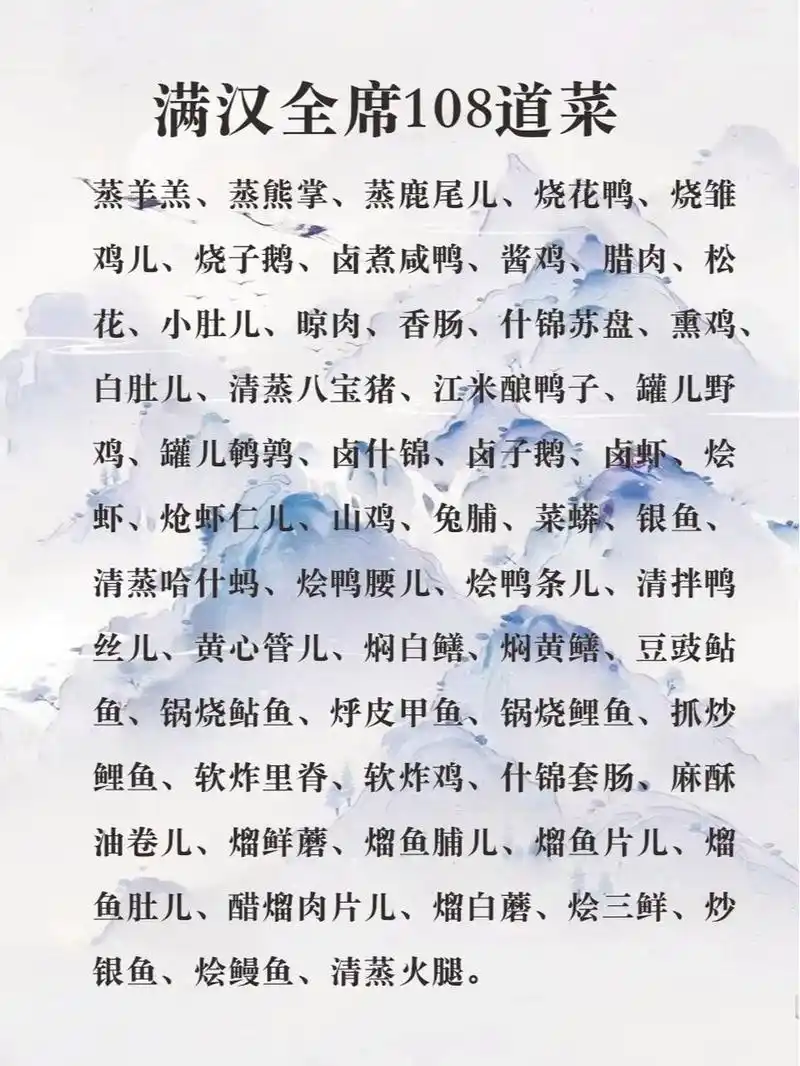 满汉全席108道菜
蒸羊羔、蒸熊掌、蒸鹿尾儿、烧花鸭、烧雏
鸡儿、烧子鹅、卤煮咸鸭、酱鸡、腊肉、松
花、小肚儿、晾肉、香肠、什锦苏盘、熏鸡、
白肚儿、清蒸八宝猪、江米酿鸭子、罐儿野
鸡、罐儿鹌鹑、卤什锦、卤子鹅、卤虾、烩
虾、炝虾仁儿、山鸡、兔脯、菜蟒、银鱼、
清蒸哈什蚂、烩鸭腰儿、烩鸭条儿、清拌鸭
丝儿、黄心管儿、焖白鳝、焖黄鳝、豆豉鲇
鱼、锅烧鲇鱼、烀皮甲鱼、锅烧鲤鱼、抓炒
鲤鱼、软炸里脊、软炸鸡、什锦套肠、麻酥
油卷儿、熘鲜蘑、熘鱼脯儿、熘鱼片儿、熘
鱼肚儿、醋熘肉片儿、熘白蘑、烩三鲜、炒
银鱼、烩鳗鱼、清蒸火腿。